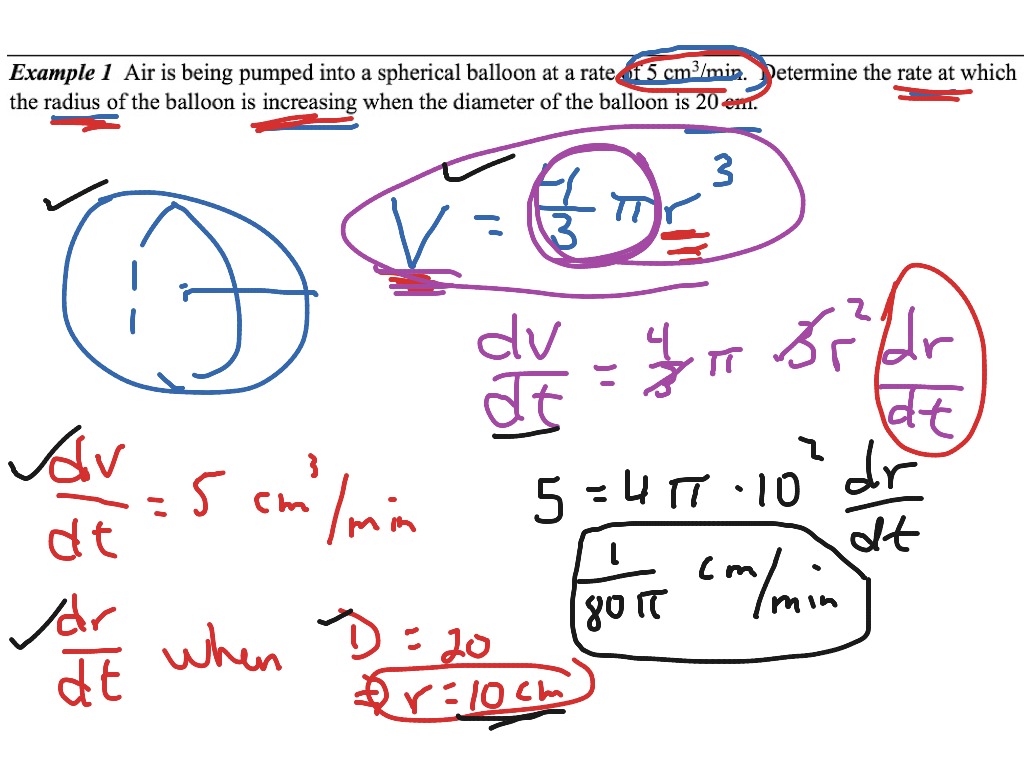 Example 1 Air is being pumped into a spherical balloon at a rate of 5 cm³/min. Determine the rate at which
the radius of the balloon is increasing when the diameter of the balloon is 20 cm.
V = 4/3 π r³
dv/dt = 4/3 π 3r² dr/dt
dv/dt = 5 cm³/min
5 = 4π · 10² dr/dt
1/80π cm/min
dr/dt when D = 20
⇒ r = 10 cm